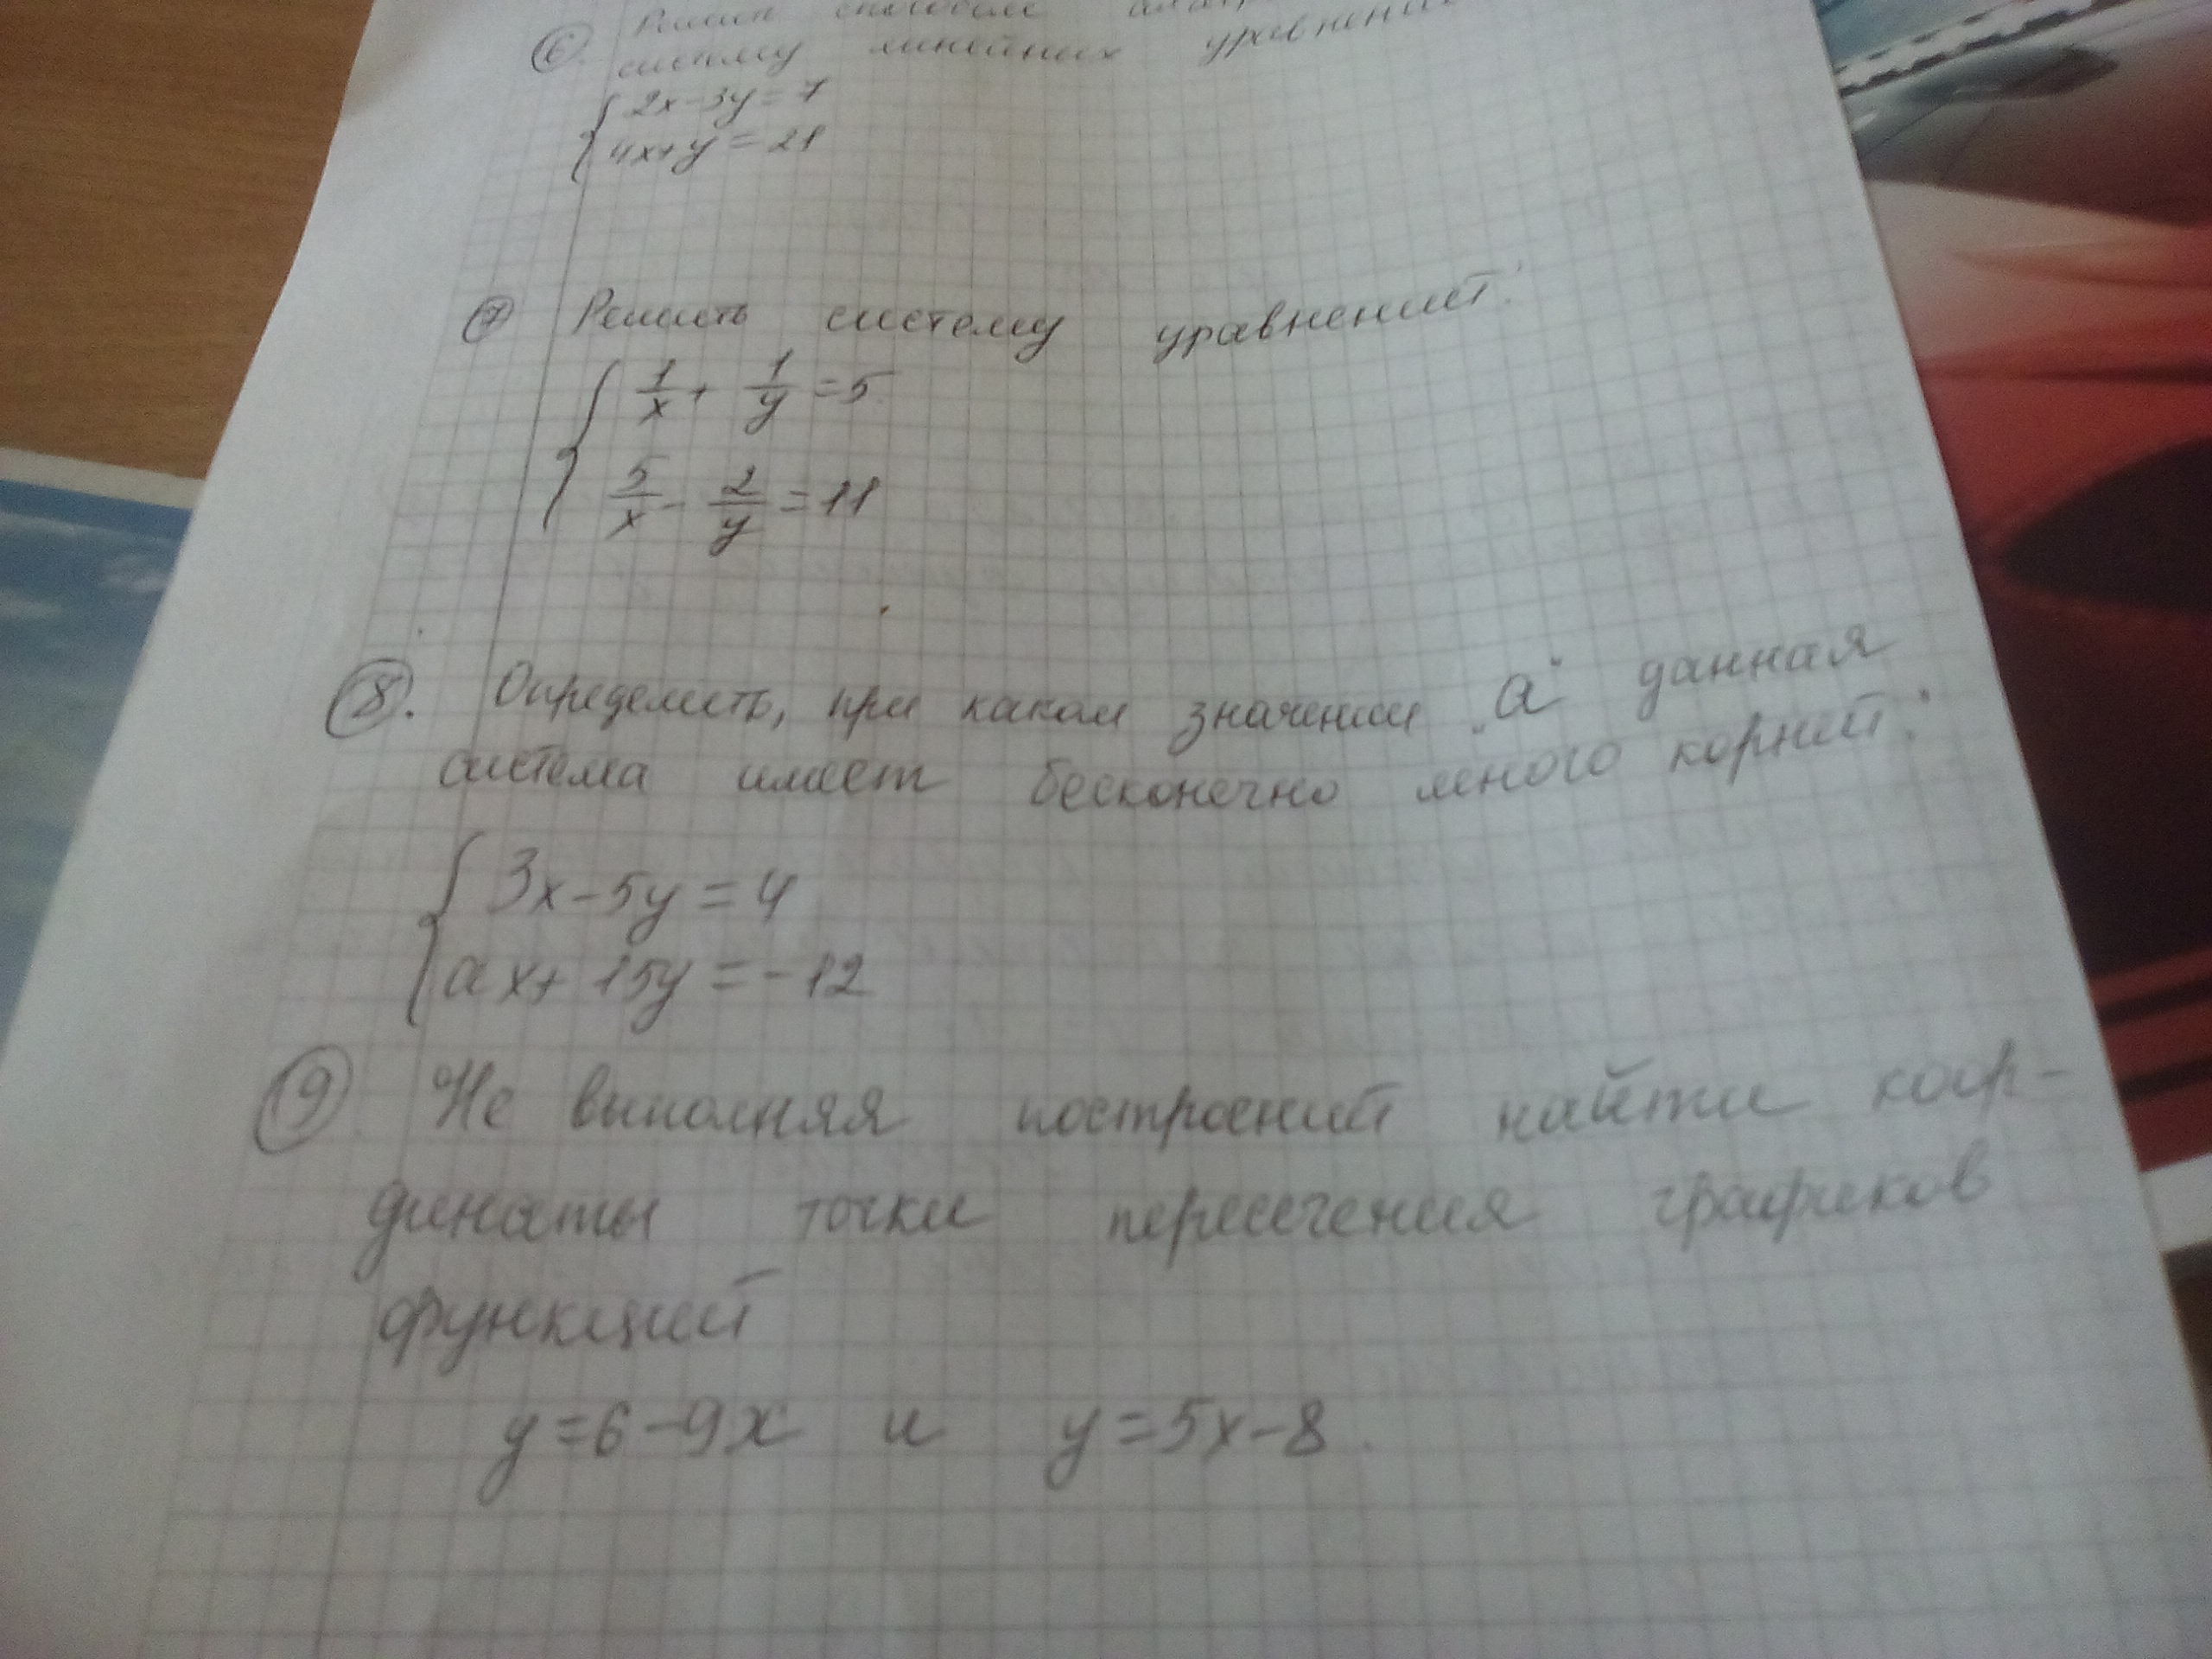 ⑥ Решить способом
систему линейных уравнений
{ 2x-3y=7
4x+y=21
⑦ Решить систему уравнений:
{ 1/x + 1/y = 5
5/x - 2/y = 11
⑧. Определить, при каком значении "a" данная
система имеет бесконечно много корний:
{ 3x-5y=4
ax+15y=-12
⑨ Не выполняя построений найти коор-
динаты точки пересечения графиков
функций
y=6-9x и y=5x-8.